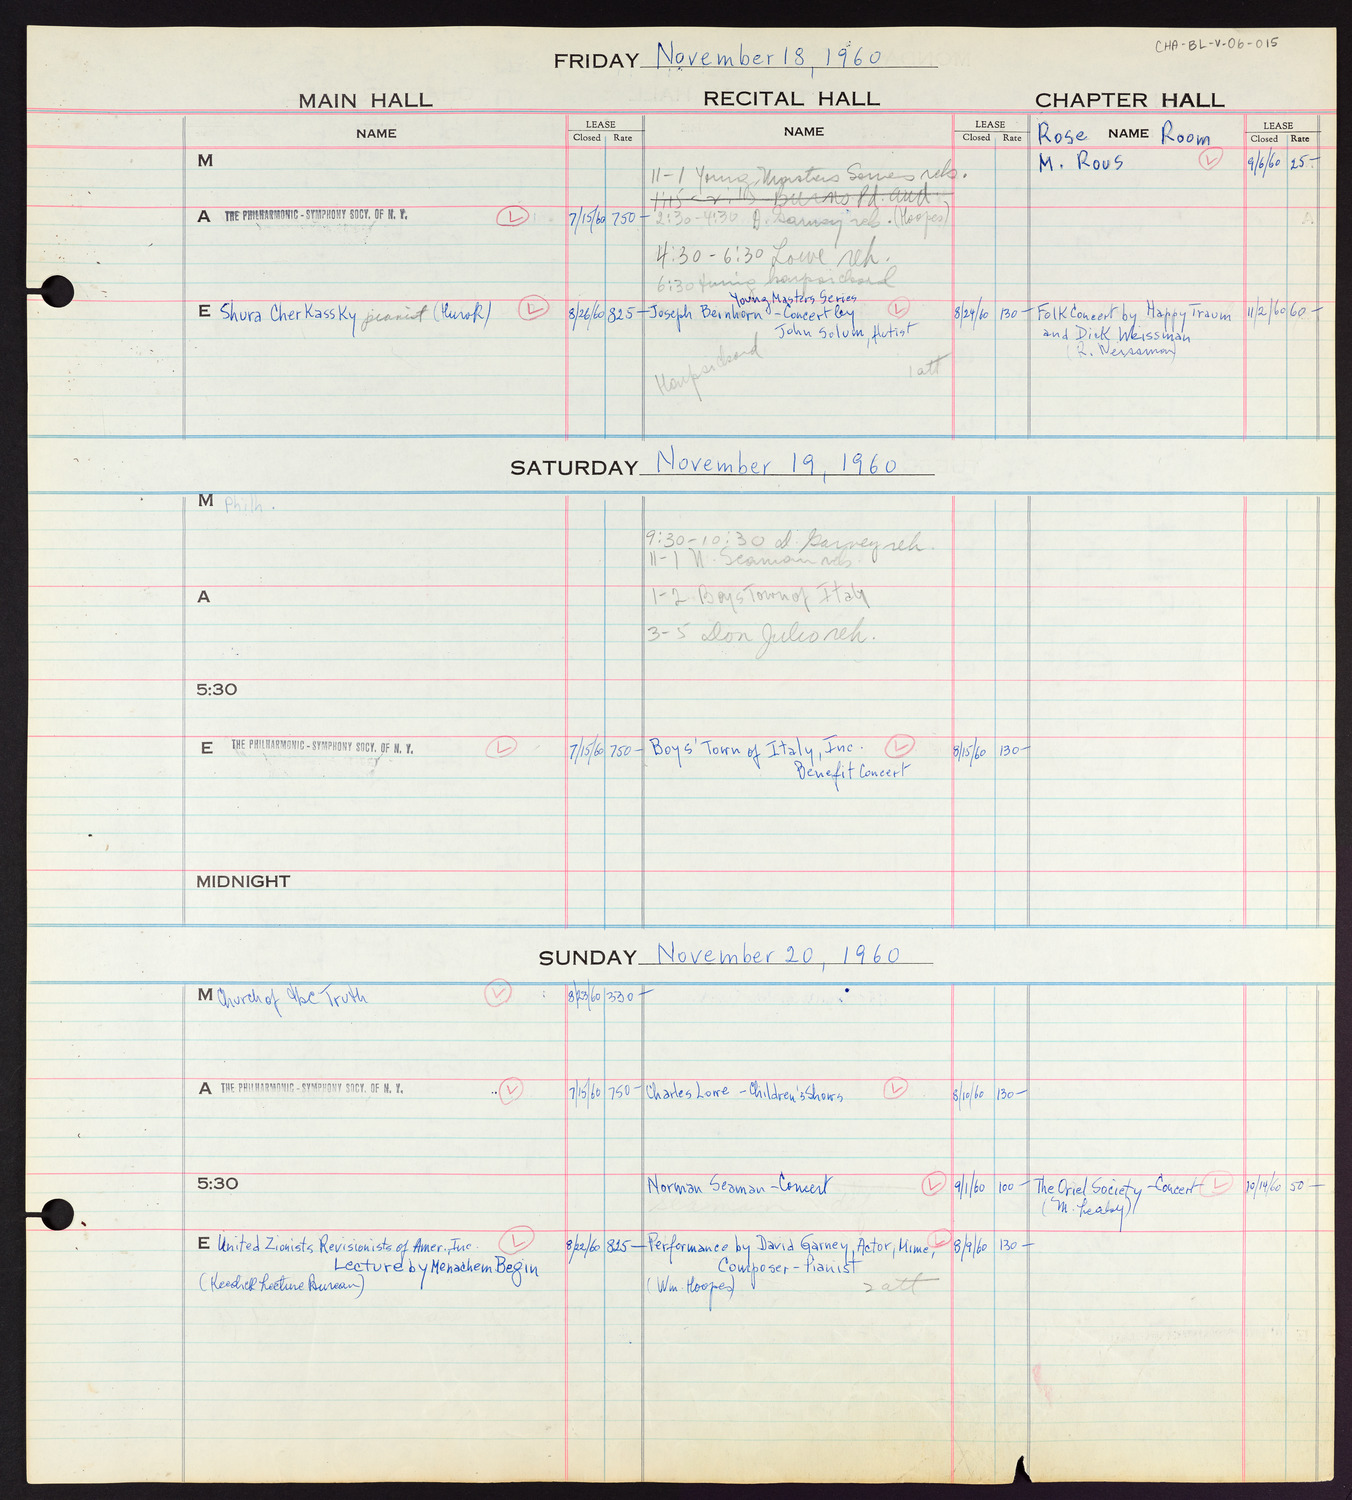 CHA-BL-V-06-015
FRIDAY November 18, 1960
MAIN HALL RECITAL HALL CHAPTER HALL
NAME LEASE Closed Rate NAME LEASE Closed Rate Rose NAME Room LEASE Closed Rate
M M. Rous L 9/6/60 25-
11-1 Young Masters Series reh.
A THE PHILHARMONIC-SYMPHONY SOCY. OF N. Y. L 7/15/60 750- 2:30-4:30 D. Garvey reh. (Hoopes)
4:30-6:30 Lowe reh.
6:30 tuning harpsichord
Young Masters Series
E Shura Cherkassky pianist (Hurok) L 8/26/60 825- Joseph Beinhorn -Concert by L 8/24/60 130- Folk Concert by Happy Traum 11/2/60 60-
John Solum, flutist and Dick Weissman
Harpsichord 1 att
SATURDAY November 19, 1960
M Philh.
9:30-10:30 D. Garvey reh.
11-1 N. Seaman reh.
A 1-2 Boys Town of Italy
3-5 Don Julio reh.
5:30
E THE PHILHARMONIC-SYMPHONY SOCY. OF N. Y. L 7/15/60 750- Boys' Town of Italy, Inc. L 8/15/60 130-
Benefit Concert
MIDNIGHT
SUNDAY November 20, 1960
M Church of the Truth L 8/23/60 330-
A THE PHILHARMONIC-SYMPHONY SOCY. OF N. Y. L 7/15/60 750- Charles Lowe -Children's Shows L 8/10/60 130-
5:30 Norman Seaman-Concert L 9/1/60 100- The Oriel Society-Concert L 10/14/60 50-
(M. Leahy)
E United Zionists Revisionists of Amer., Inc. L 8/22/60 825- Performance by David Garvey, Actor, Mime, L 8/9/60 130-
Lecture by Menachem Begin Composer-Pianist
(Keedick Lecture Bureau) (Wm. Hoopes) 2 att